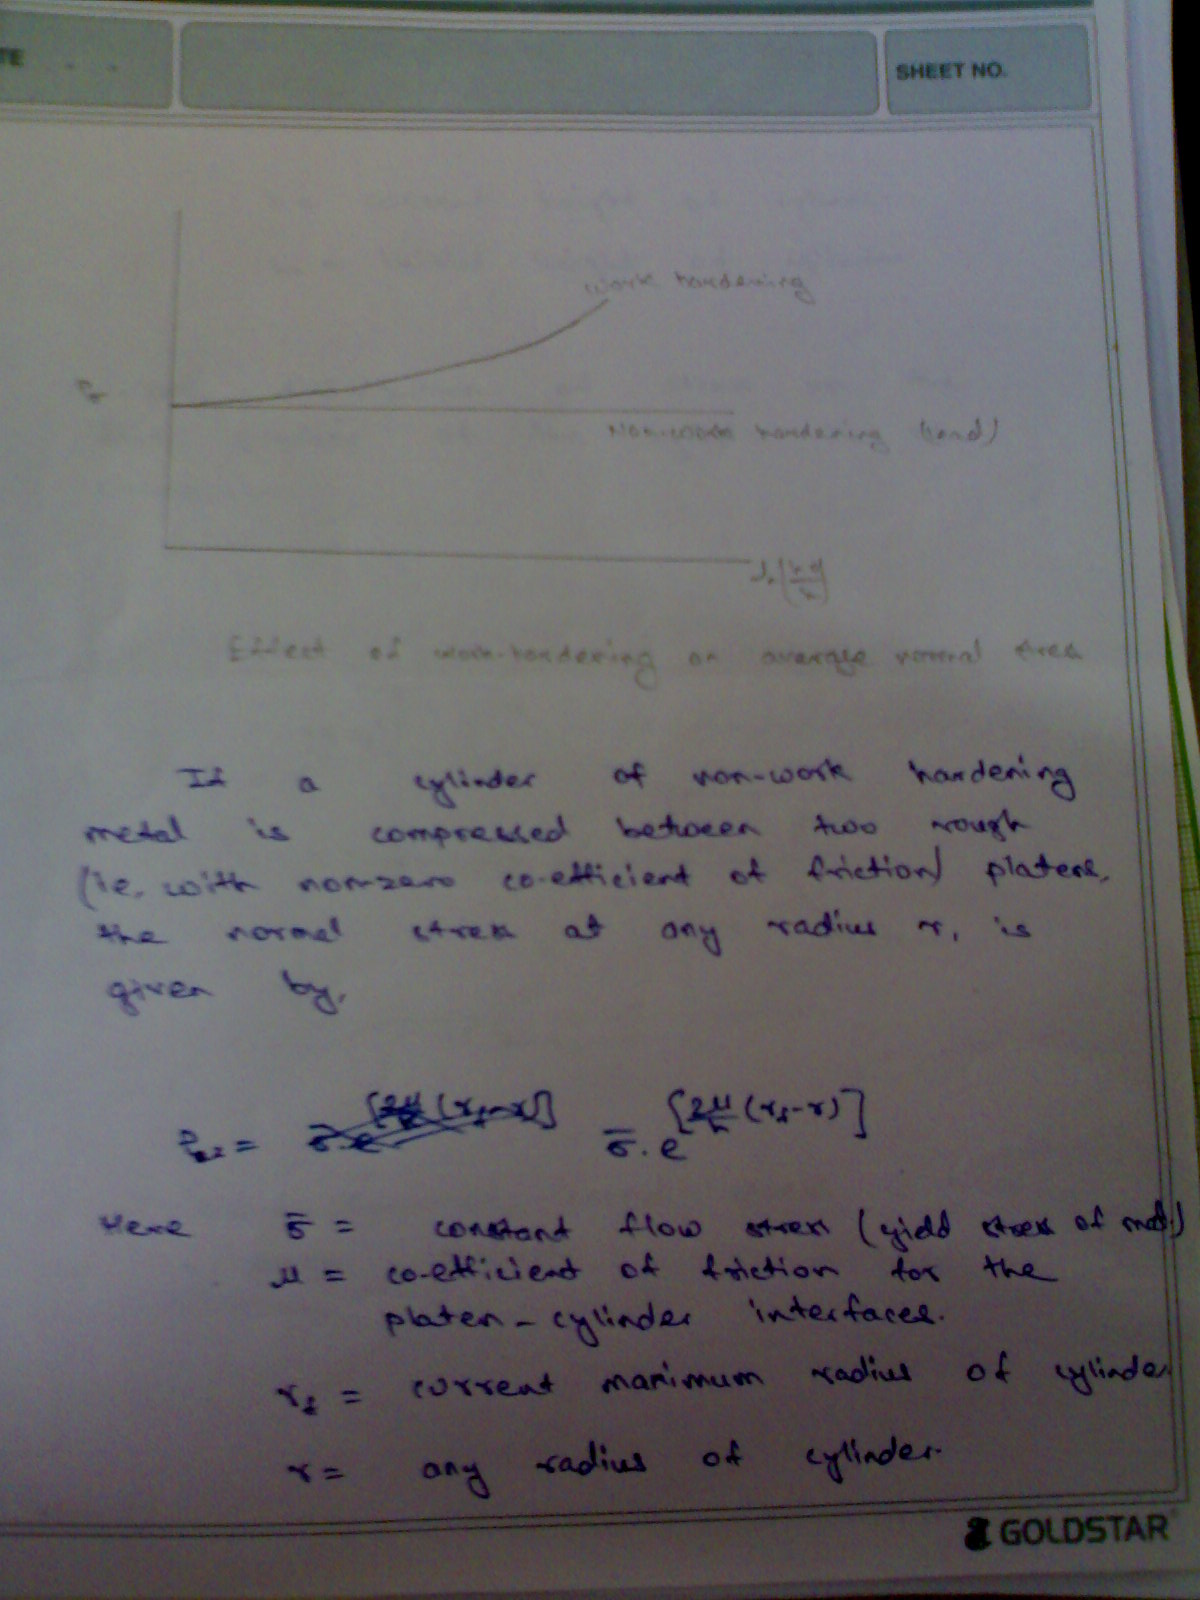 TE
SHEET NO.
work hardening
Pσ
Non-work hardening (lead)
ln(h0/h)
Effect of work-hardening on average normal stress
If a cylinder of non-work hardening
metal is compressed between two rough
(i.e. with non-zero co-efficient of friction) platens,
the normal stress at any radius r, is
given by,
= σ̄ . e^[2μ/h (r_f - r)]
Here σ̄ = constant flow stress (yield stress of matl.)
μ = co-efficient of friction for the
platen - cylinder interfaces.
r_f = current maximum radius of cylinder
r = any radius of cylinder.
GOLDSTAR